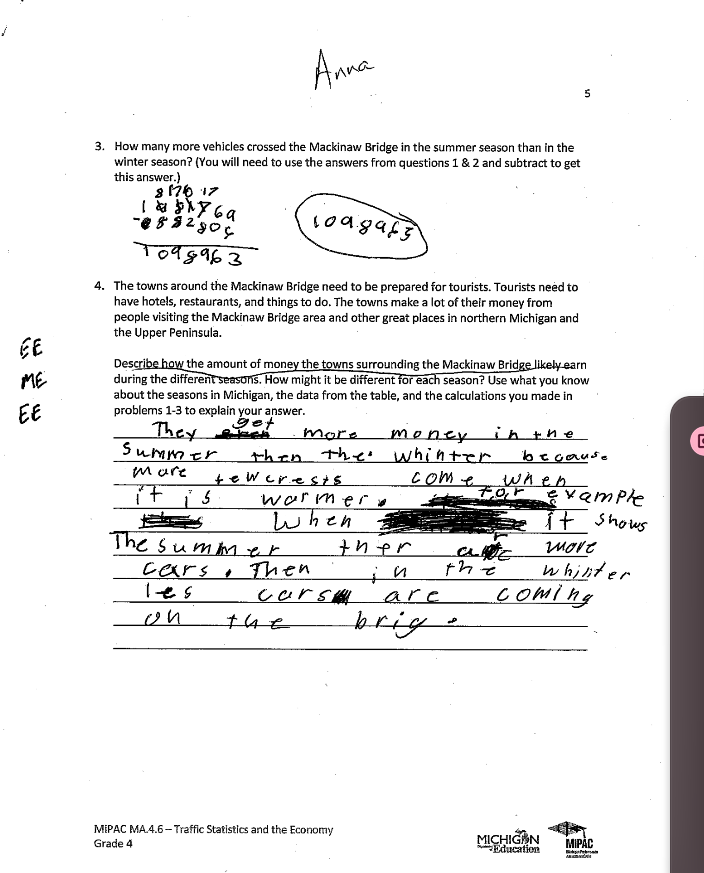 Anna
5
3. How many more vehicles crossed the Mackinaw Bridge in the summer season than in the
winter season? (You will need to use the answers from questions 1 & 2 and subtract to get
this answer.)
1098963
1098963
4. The towns around the Mackinaw Bridge need to be prepared for tourists. Tourists need to
have hotels, restaurants, and things to do. The towns make a lot of their money from
people visiting the Mackinaw Bridge area and other great places in northern Michigan and
the Upper Peninsula.
EE
ME
EE
Describe how the amount of money the towns surrounding the Mackinaw Bridge likely earn
during the different seasons. How might it be different for each season? Use what you know
about the seasons in Michigan, the data from the table, and the calculations you made in
problems 1-3 to explain your answer.
They get more money in the
Summer then the whinter because
more tewerests come when
it is warmer. for example
When it shows
The summer ther are more
cars. Then in the whinter
les cars are coming
on the brig.
MiPAC MA.4.6 – Traffic Statistics and the Economy
Grade 4
MICHIGAN
Education
MIPAC